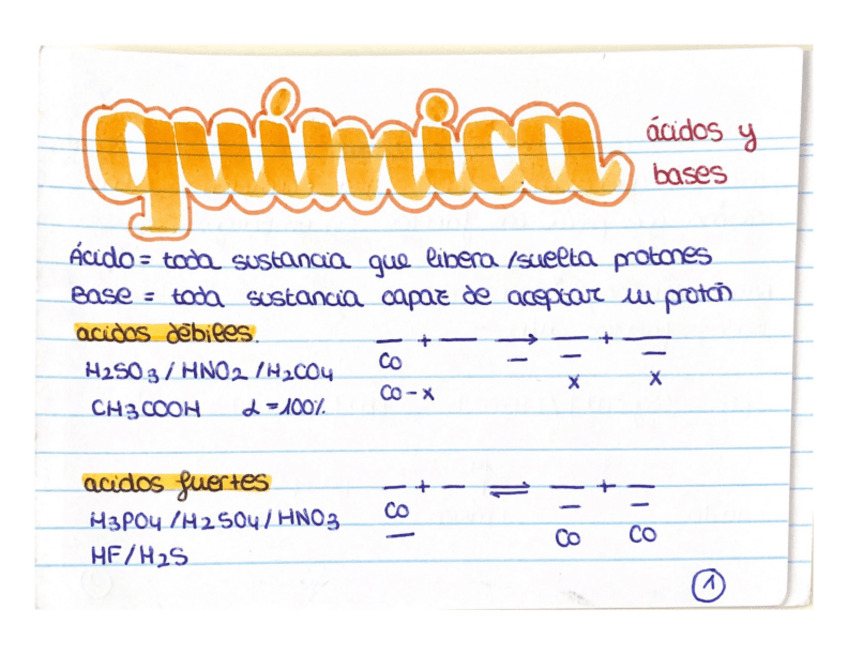 química
ácidos y
bases
Ácido = toda sustancia que libera /suelta protones
Base = toda sustancia capaz de aceptar un protón
acidos débiles.
— + — → — + —
H2SO3 / HNO2 / H2CO4
Co — — —
CH3COOH α = 100%.
Co - x x x
acidos fuertes
— + — ⇌ — + —
H3PO4 / H2SO4 / HNO3
Co — —
HF / H2S
— Co Co
1